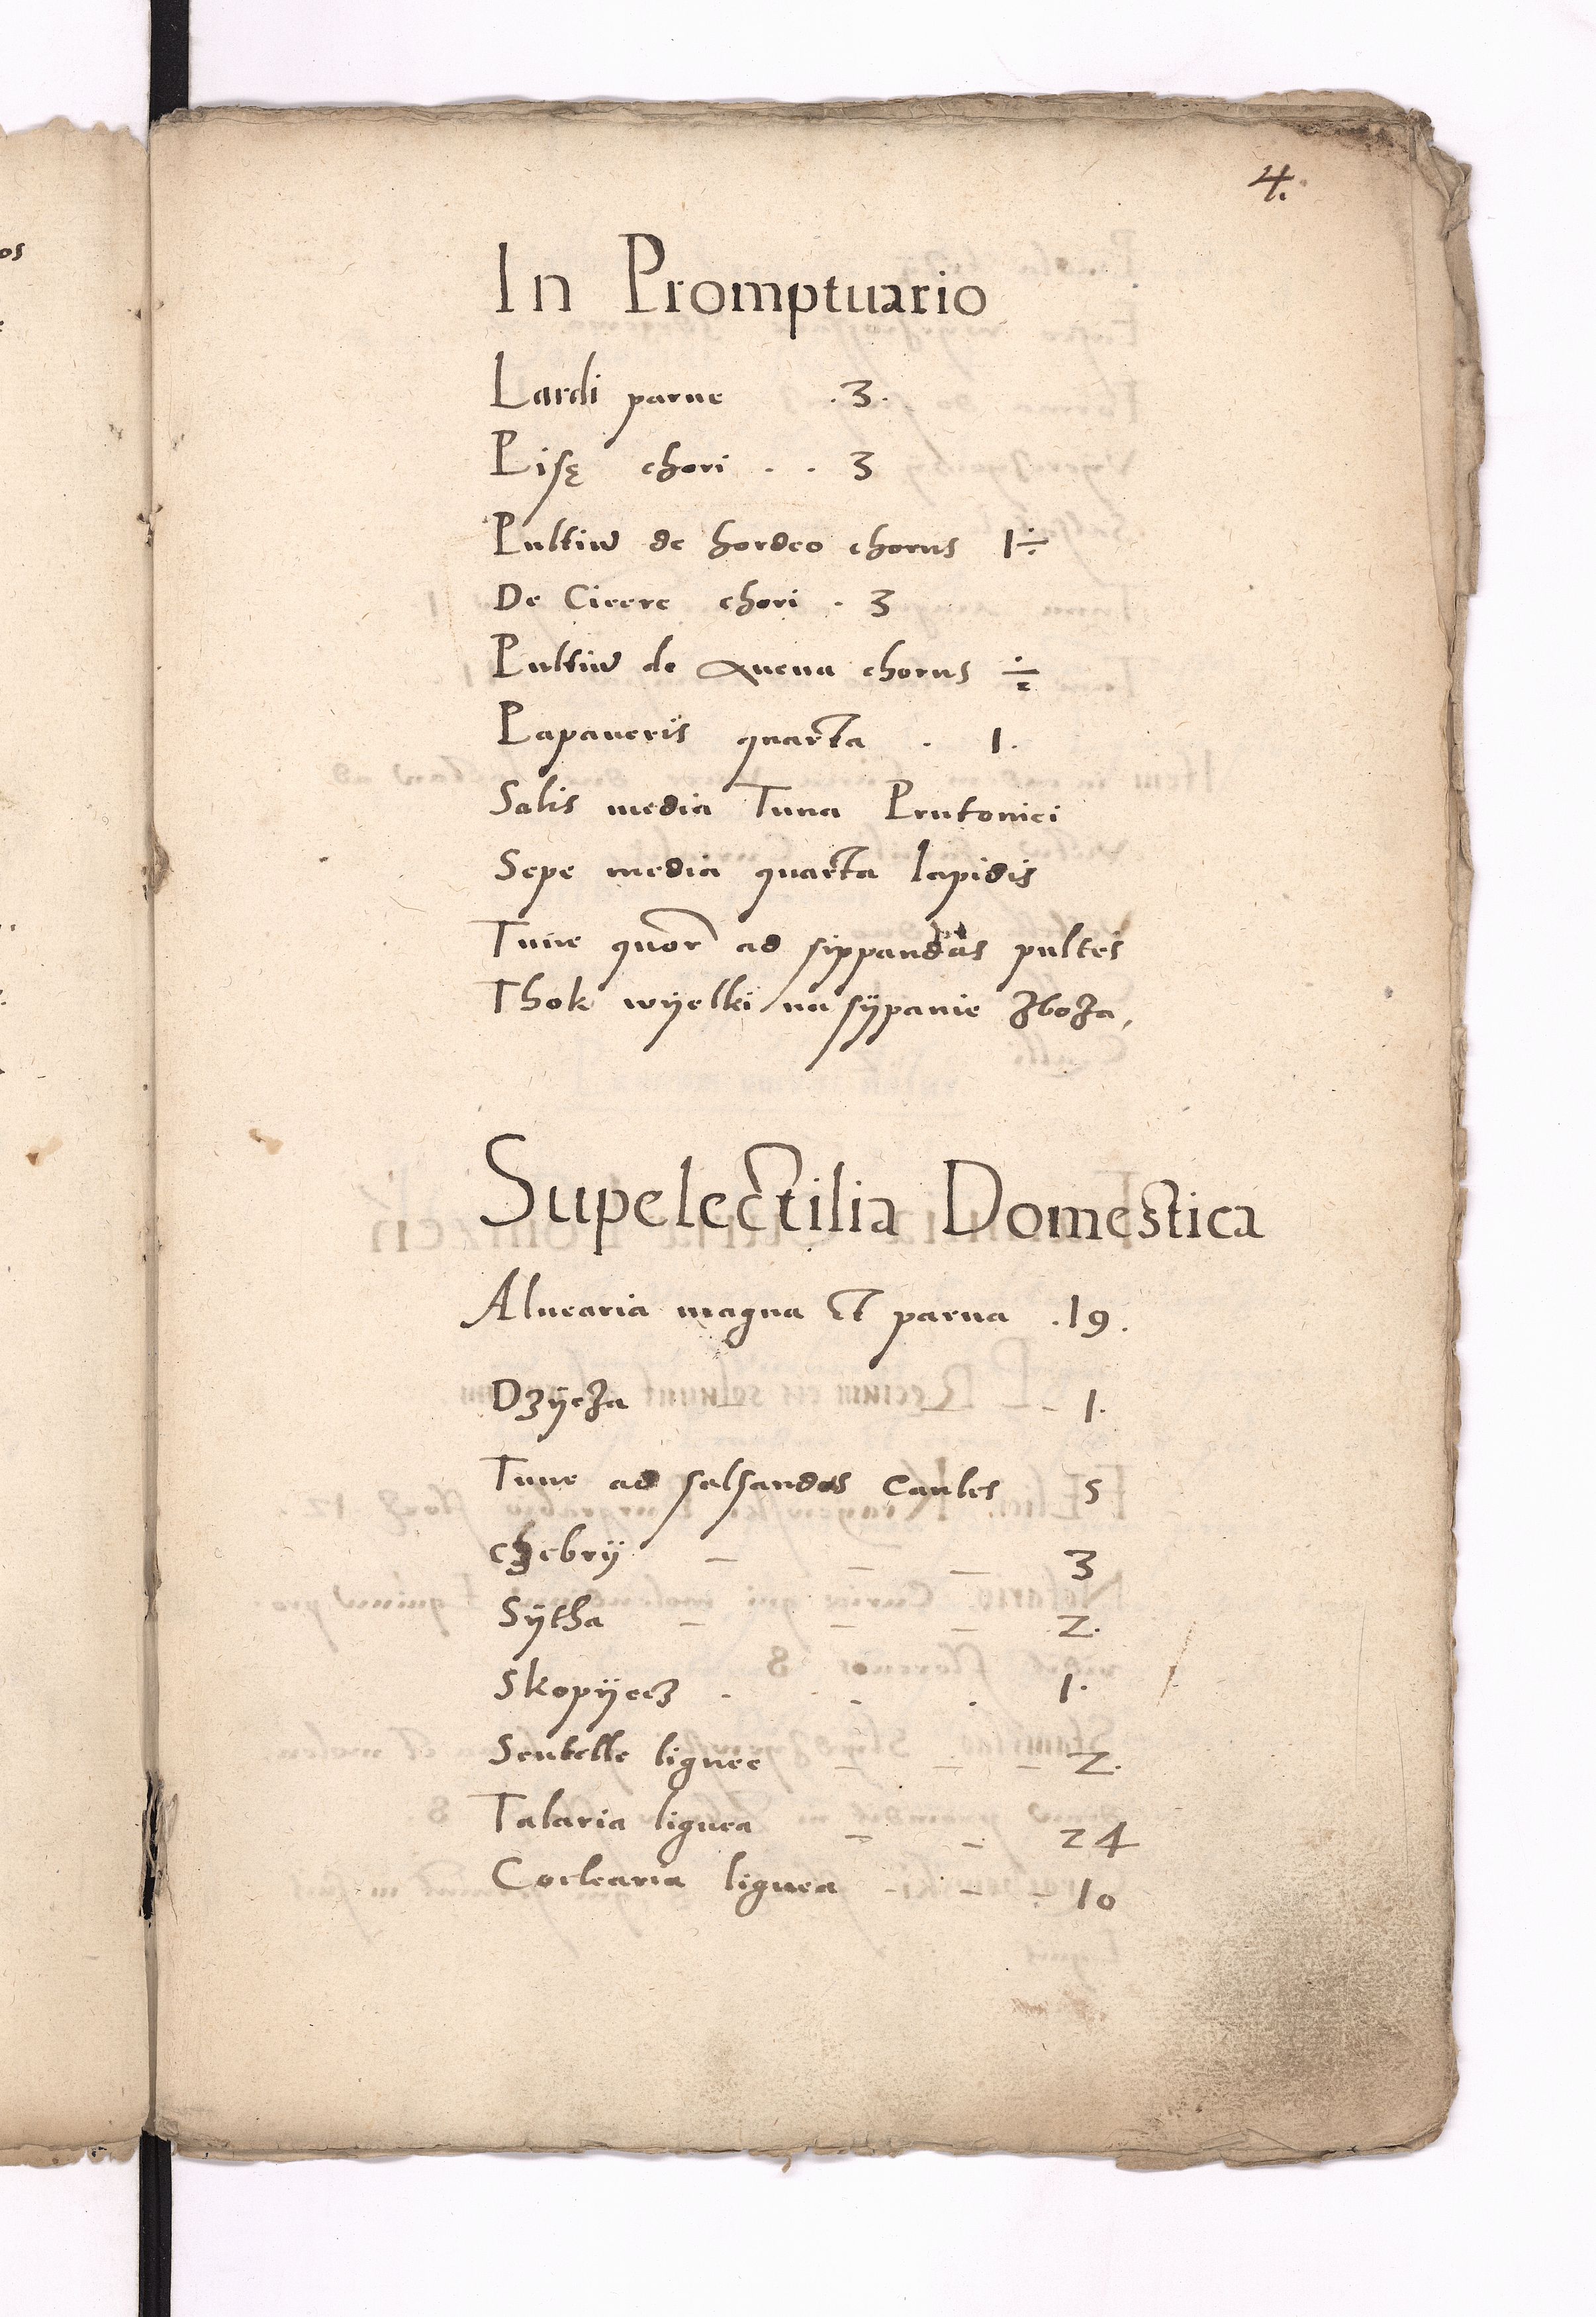 4.
In Promptuario
Lardi parue .3.
Pisę chori . . 3
Pultiu de hordeo chorus 1÷
De Cicere chori . 3
Pultiu de Auena chorus ÷
Papaueris quarta . 1.
Salis media Tuna Prutonici
Sepe media quarta lapidis
Tune quor ad sippandas pultes
Thok wÿelki na sÿpanie zboza,
Supelectilia Domestica
Aluearia magna et parua .19.
Dzÿeza - - - 1.
Tune ad salsandos Caules 5
chebrÿ - - - 3
Sÿtha - - - 2.
Skopÿecz . . . 1.
Scutelle lignee - - - 2.
Talaria lignea - - 24
Coclearia lignea - - - 10
os